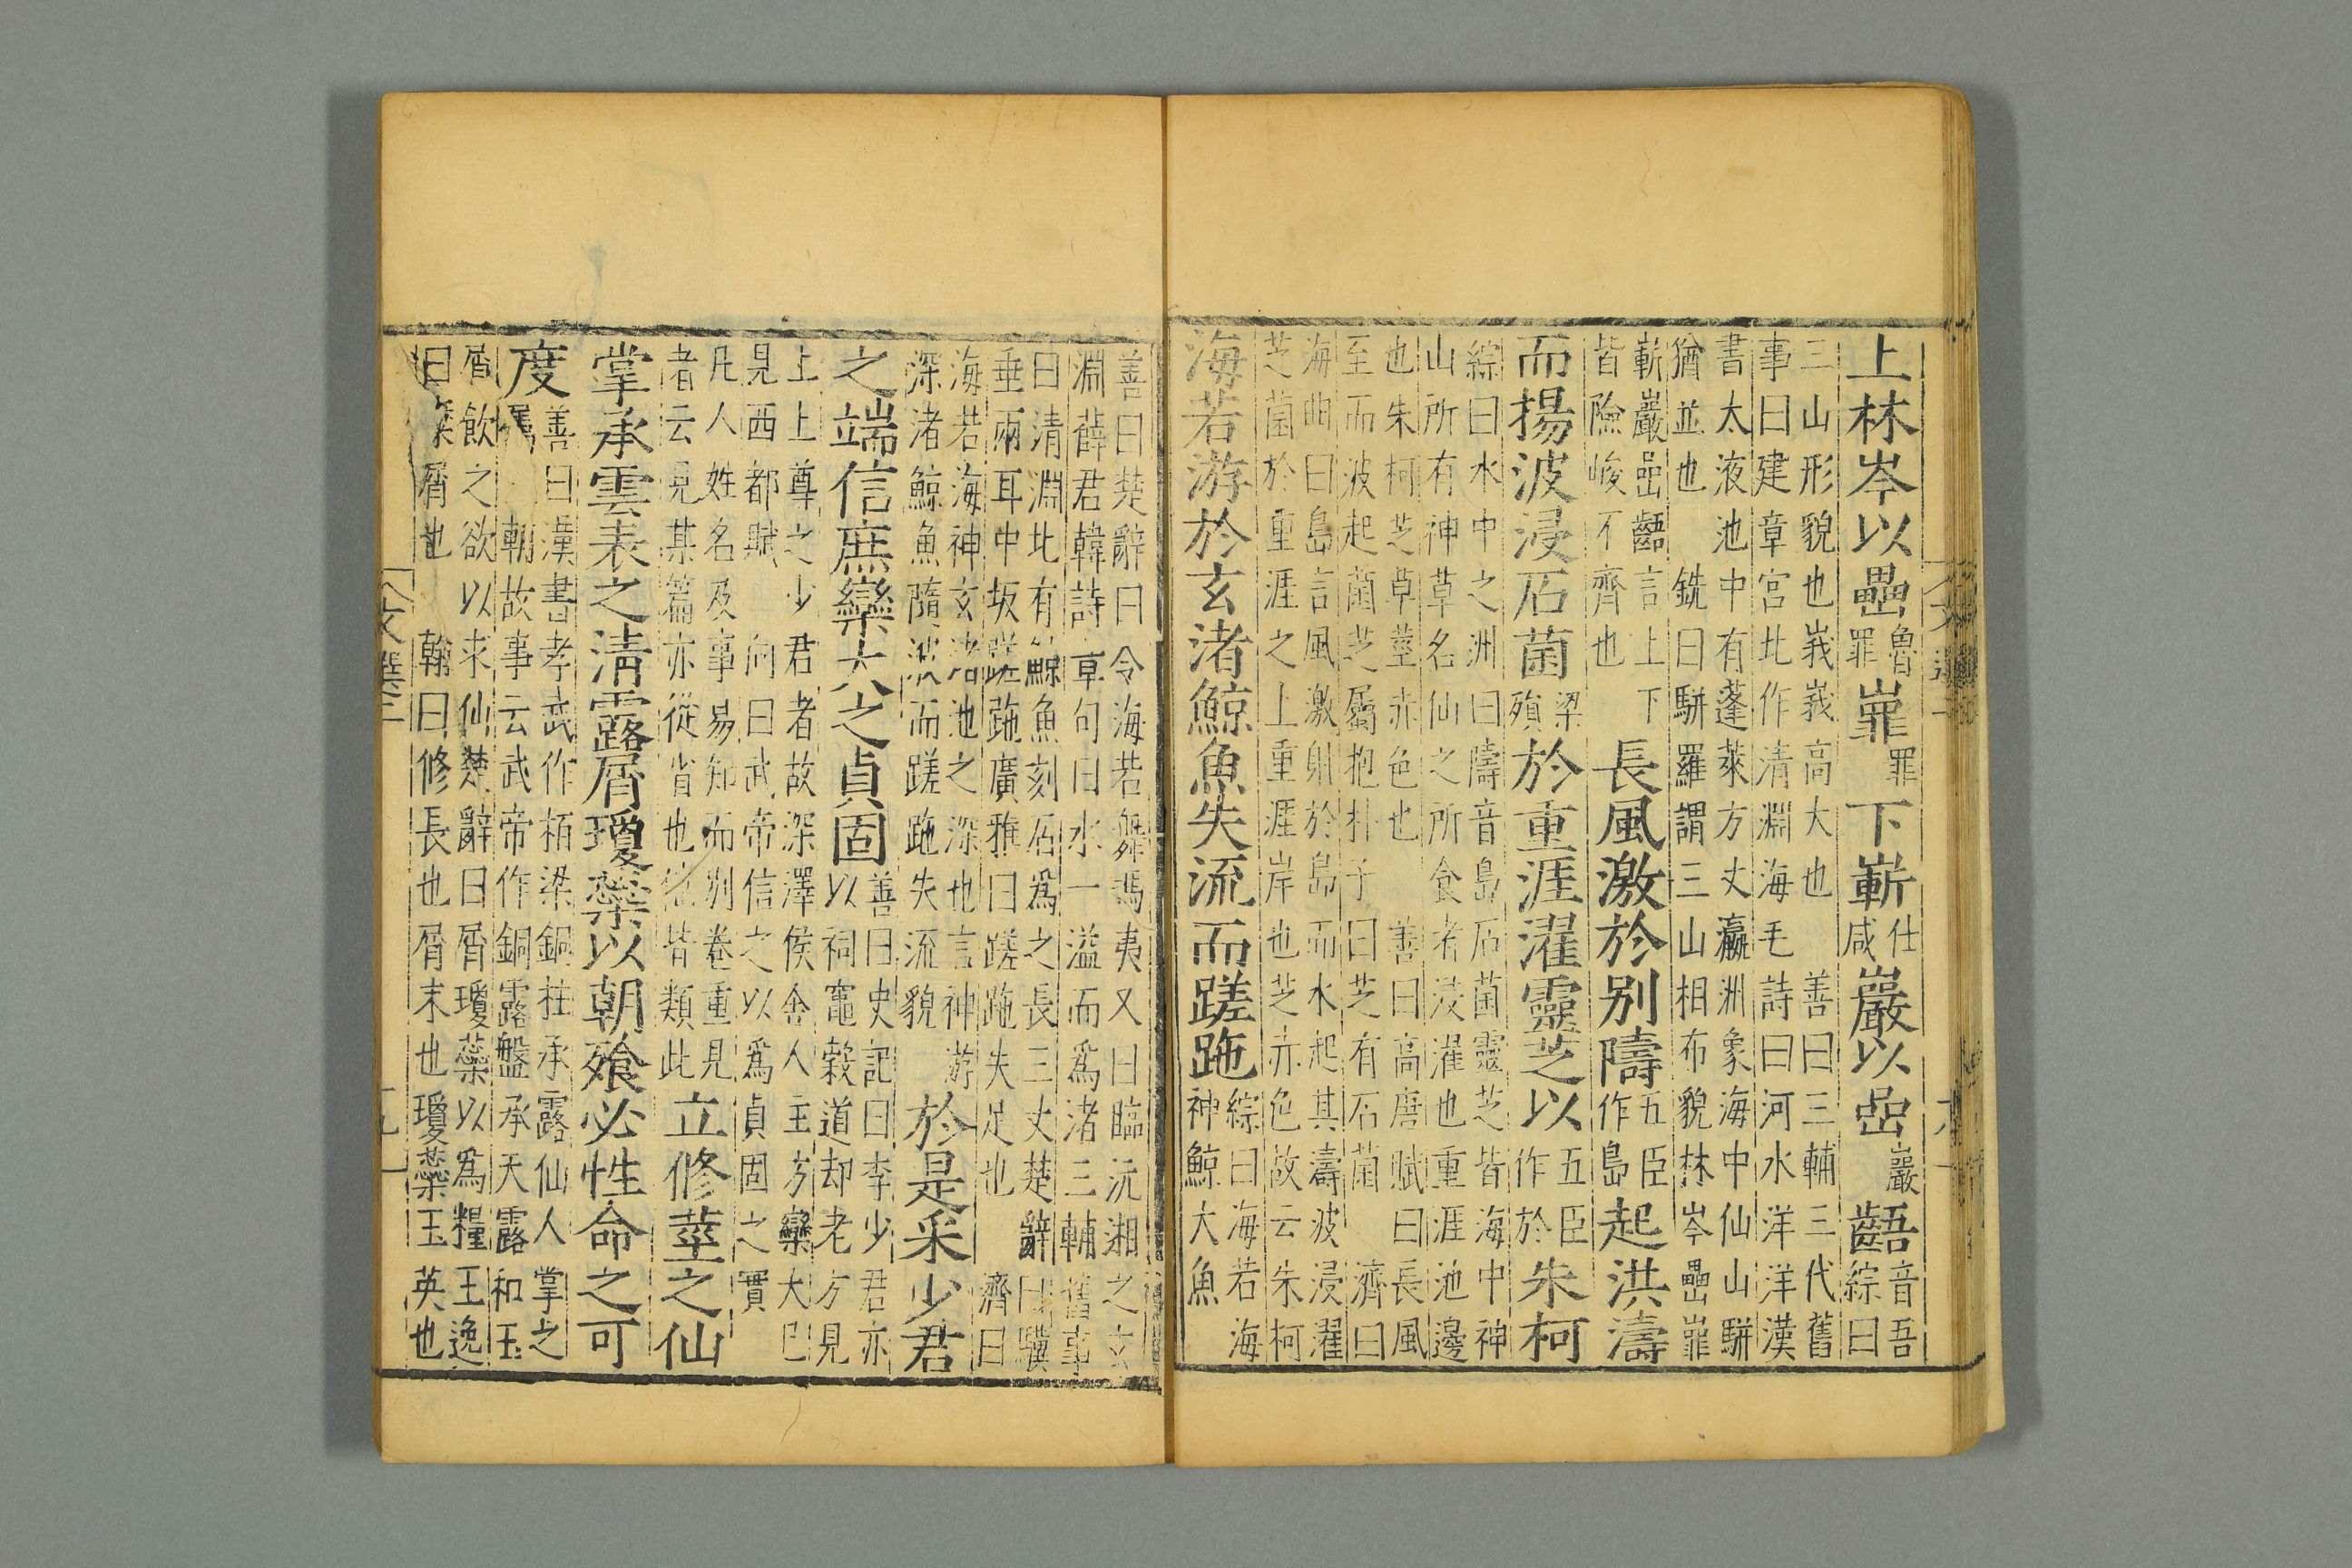 上林岑以壘魯罪嶵罪下嶄仕咸巖以嵒巖齬音吾綜曰
三山形貌也峩峩高大也善曰三輔三代舊
事曰建章宮北作清淵海毛詩曰河水洋洋漢
書太液池中有蓬萊方丈瀛洲象海中仙山駢
猶並也銑曰駢羅謂三山相布貌林岑壘嶵
嶄巖嵒齬言上下
皆險峻不齊也
長風激於别隯五臣作島起洪濤
而揚波浸石菌梁殞於重涯濯靈芝以五臣作於朱柯
綜曰水中之洲曰隯音島石菌靈芝皆海中神
山所有神草名仙之所食者浸濯也重涯池邊
也朱柯芝草莖赤色也善曰高唐賦曰長風
至而波起菌芝屬抱朴子曰芝有石菌濟曰
海曲曰島言風激射於島而水起其濤波浸濯
芝菌於重涯之上重涯岸也芝亦色故云朱柯
海若游於玄渚鯨魚失流而蹉跎綜曰海若海神鯨大魚
善曰楚辭曰令海若舞馮夷又曰臨沅湘之玄
淵薛君韓詩章句曰水一溢而爲渚三輔舊事
曰清淵北有鯨魚刻石爲之長三丈楚辭曰驥
垂兩耳中坂蹉跎廣雅曰蹉跎失足也濟曰
海若海神玄渚池之深也言神游
深渚鯨魚隨波而蹉跎失流貌
於是采少君
之端信庶欒大之貞固善曰史記曰李少君亦以祠竈穀道却老方見
上上尊之少君者故深澤侯舍人主方欒大巳
見西都賦向曰武帝信之以爲貞固之實
凡人姓名及事易知而别卷重見
者云見某篇亦從省也他皆類此
立修莖之仙
掌承雲表之清露屑瓊蘂以朝飱必性命之可
度善曰漢書孝武作栢梁銅柱承露仙人掌之
朝故事云武帝作銅露盤承天露和玉
屑飲之欲以求仙楚辭曰屑瓊蘂以爲糧王逸
曰屑也翰曰修長也屑末也瓊蘂玉英也
文選二